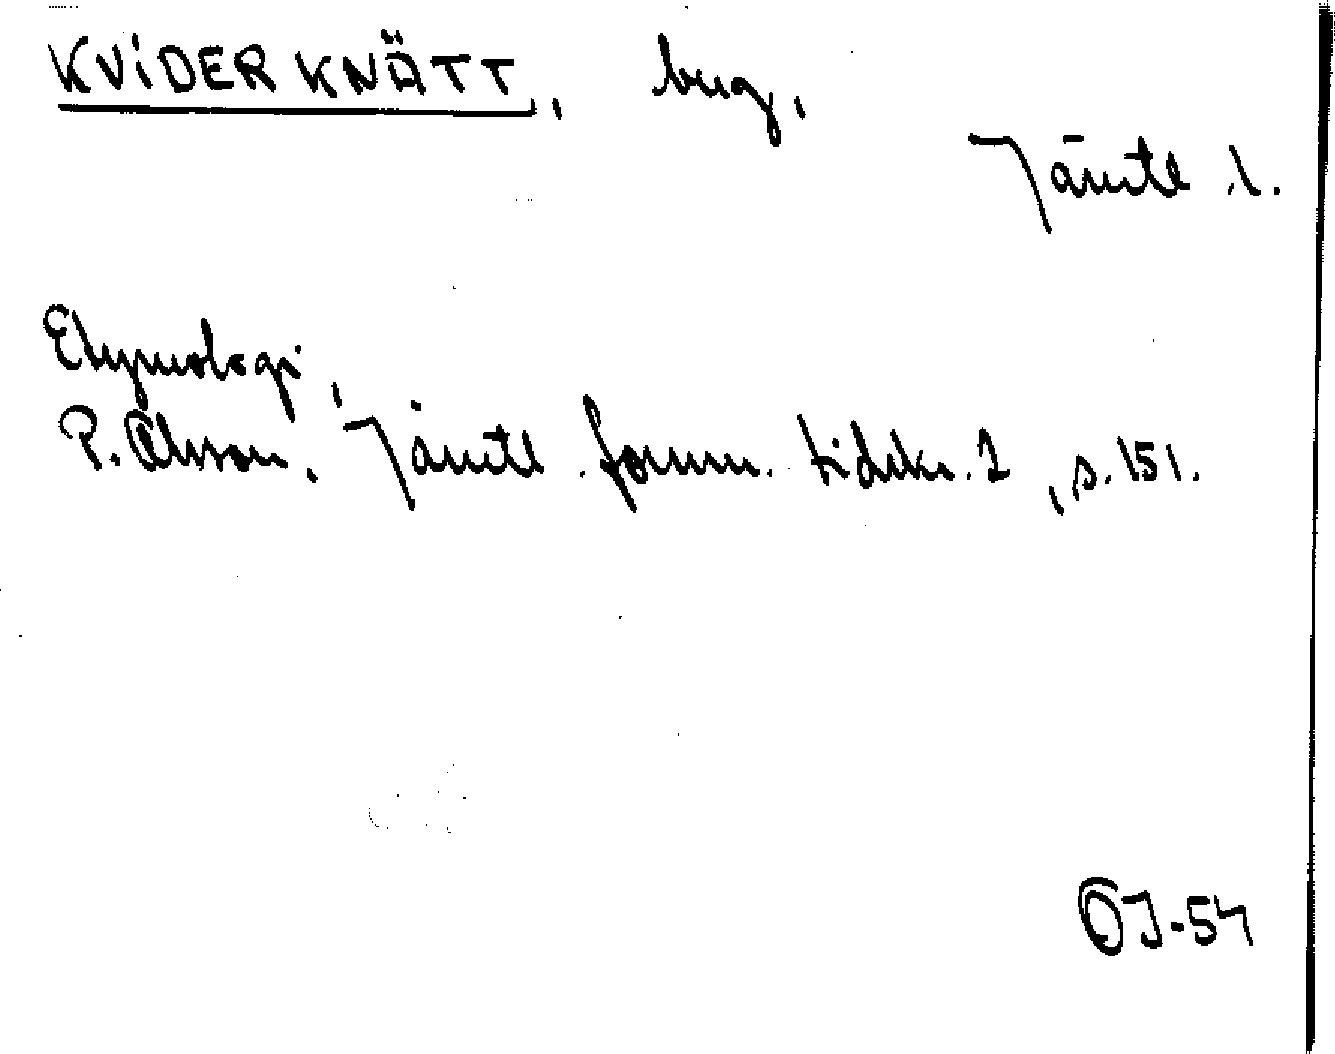 KVIDERKNÄTT, berg,
Jämtl.
Etymologi
P. Olsson, Jämtl. fornm. tidskr. 1, s. 151.
OJ-54